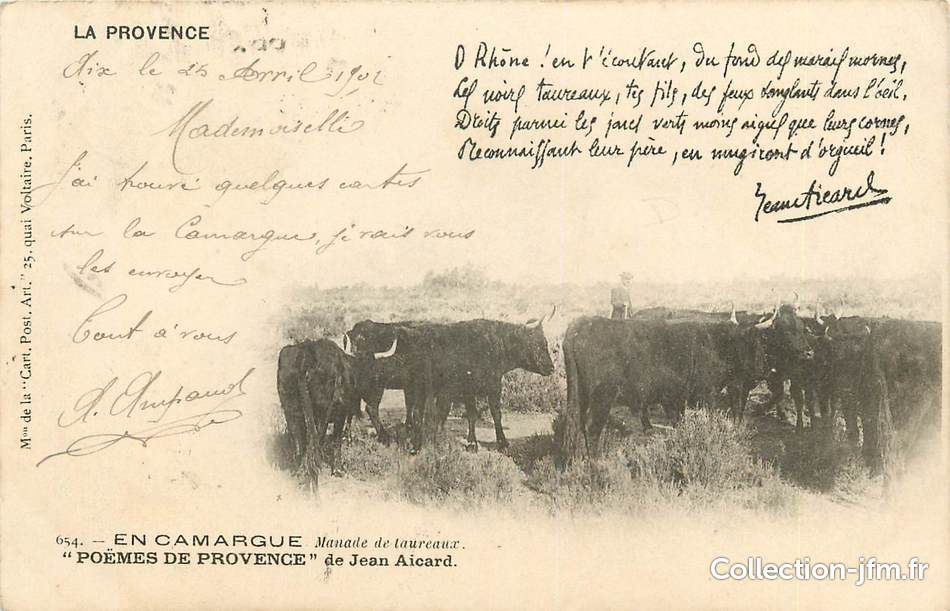 LA PROVENCE
Aix le 25 Avril 1902
Mademoiselle
j'ai trouvé quelques cartes
sur la Camargue, je vais vous
les envoyer
Tout à vous
O Rhône ! en t'écoutant, du fond des marais mornes,
Les noirs taureaux, tes fils, des feux sanglants dans l'œil,
Droits parmi les joncs verts moins aigus que leurs cornes,
Reconnaissant leur père, en mugiront d'orgueil !
Jean Aicard
Mon de la "Cart. Post. Art." 25, quai Voltaire, Paris.
654. - EN CAMARGUE Manade de taureaux.
"POËMES DE PROVENCE" de Jean Aicard.
Collection-jfm.fr